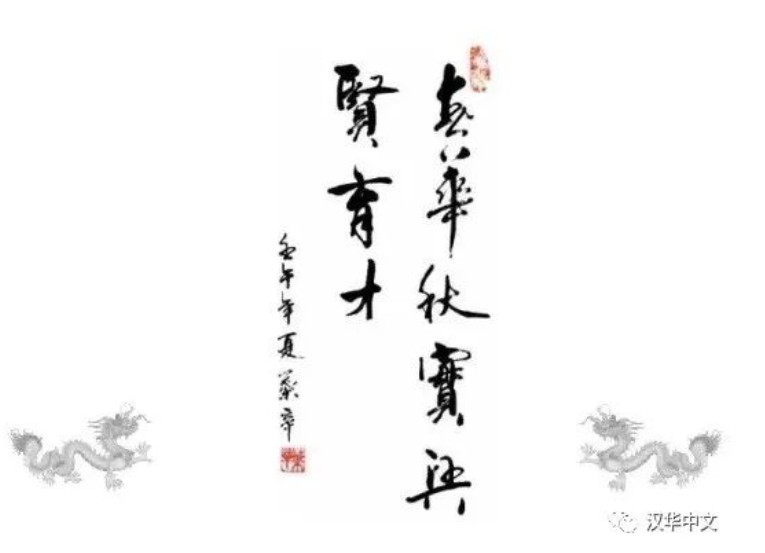 春華秋實興
賢育才
壬午年夏
汉华中文